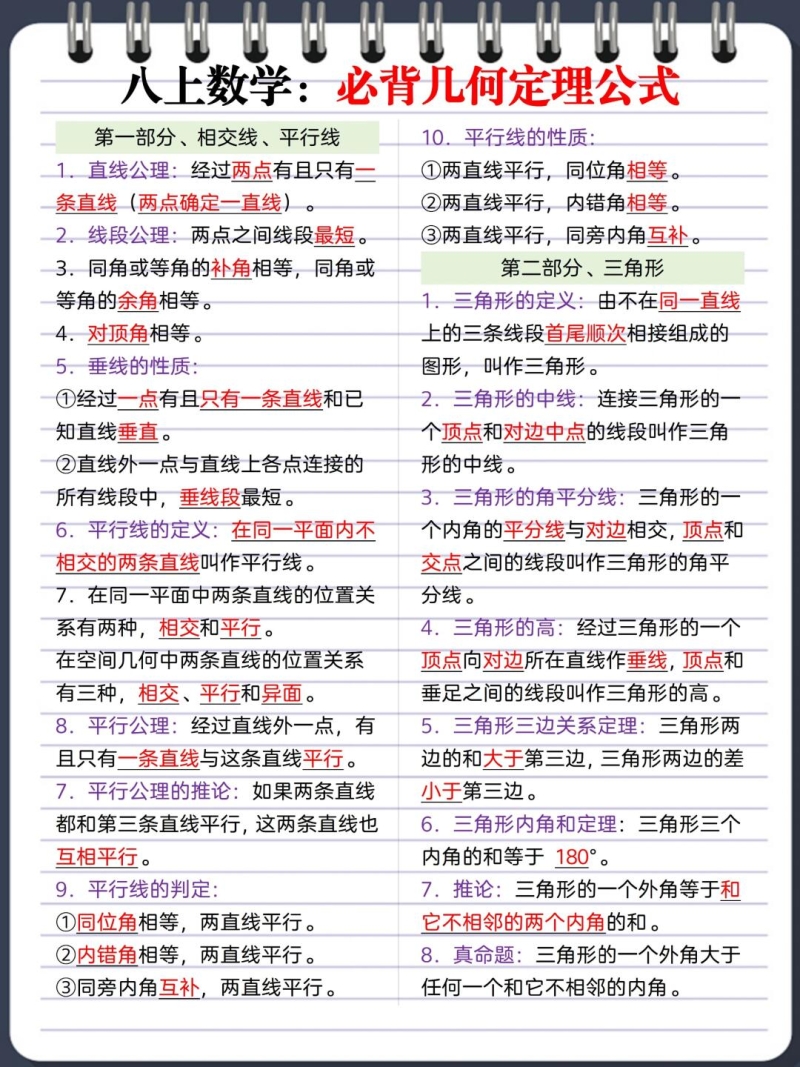 八上数学：必背几何定理公式
第一部分、相交线、平行线
1．直线公理：经过两点有且只有一
条直线（两点确定一直线）。
2．线段公理：两点之间线段最短。
3．同角或等角的补角相等，同角或
等角的余角相等。
4．对顶角相等。
5．垂线的性质：
①经过一点有且只有一条直线和已
知直线垂直。
②直线外一点与直线上各点连接的
所有线段中，垂线段最短。
6．平行线的定义：在同一平面内不
相交的两条直线叫作平行线。
7．在同一平面中两条直线的位置关
系有两种，相交和平行。
在空间几何中两条直线的位置关系
有三种，相交、平行和异面。
8．平行公理：经过直线外一点，有
且只有一条直线与这条直线平行。
7．平行公理的推论：如果两条直线
都和第三条直线平行，这两条直线也
互相平行。
9．平行线的判定：
①同位角相等，两直线平行。
②内错角相等，两直线平行。
③同旁内角互补，两直线平行。
10．平行线的性质：
①两直线平行，同位角相等。
②两直线平行，内错角相等。
③两直线平行，同旁内角互补。
第二部分、三角形
1．三角形的定义：由不在同一直线
上的三条线段首尾顺次相接组成的
图形，叫作三角形。
2．三角形的中线：连接三角形的一
个顶点和对边中点的线段叫作三角
形的中线。
3．三角形的角平分线：三角形的一
个内角的平分线与对边相交，顶点和
交点之间的线段叫作三角形的角平
分线。
4．三角形的高：经过三角形的一个
顶点向对边所在直线作垂线，顶点和
垂足之间的线段叫作三角形的高。
5．三角形三边关系定理：三角形两
边的和大于第三边，三角形两边的差
小于第三边。
6．三角形内角和定理：三角形三个
内角的和等于 180°。
7．推论：三角形的一个外角等于和
它不相邻的两个内角的和。
8．真命题：三角形的一个外角大于
任何一个和它不相邻的内角。